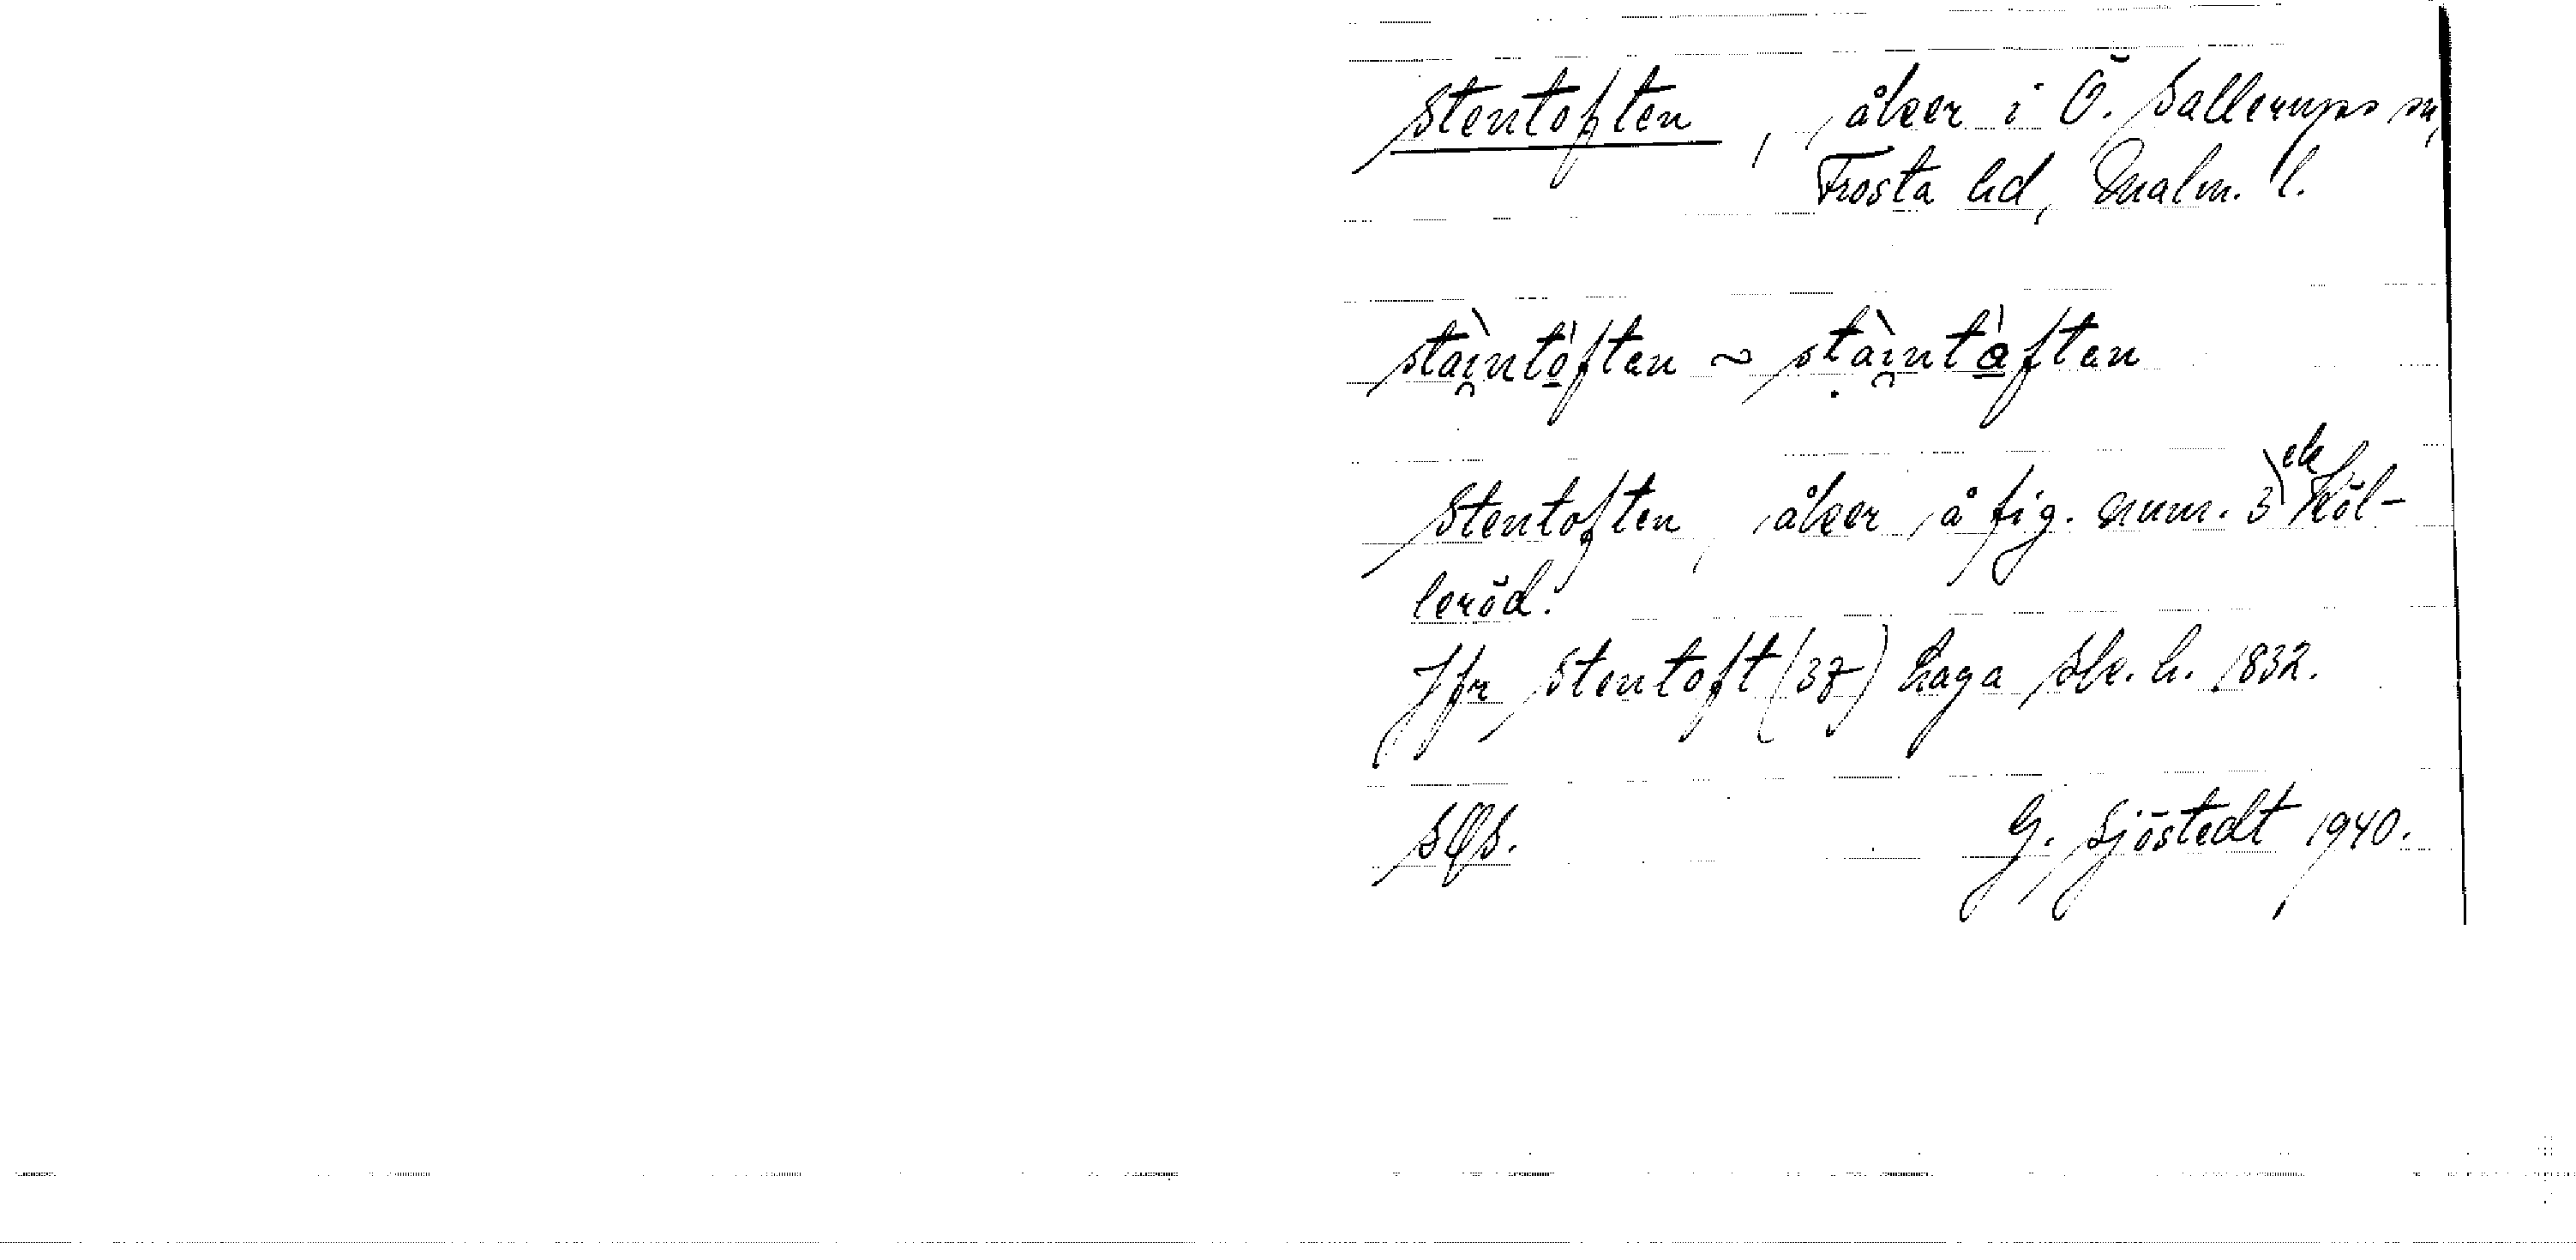 Stentoften, åker i Ö. Sallerups sn,
Frosta hd, Malm. l.
stài̯ntòften ~ stài̯ntåften
Stentoften, åker å fig. num. 3 \ek Köl-
leröd.
Jfr Stentoft (37) haga Sk. h. 1832.
SOS. G. Sjöstedt 1940.